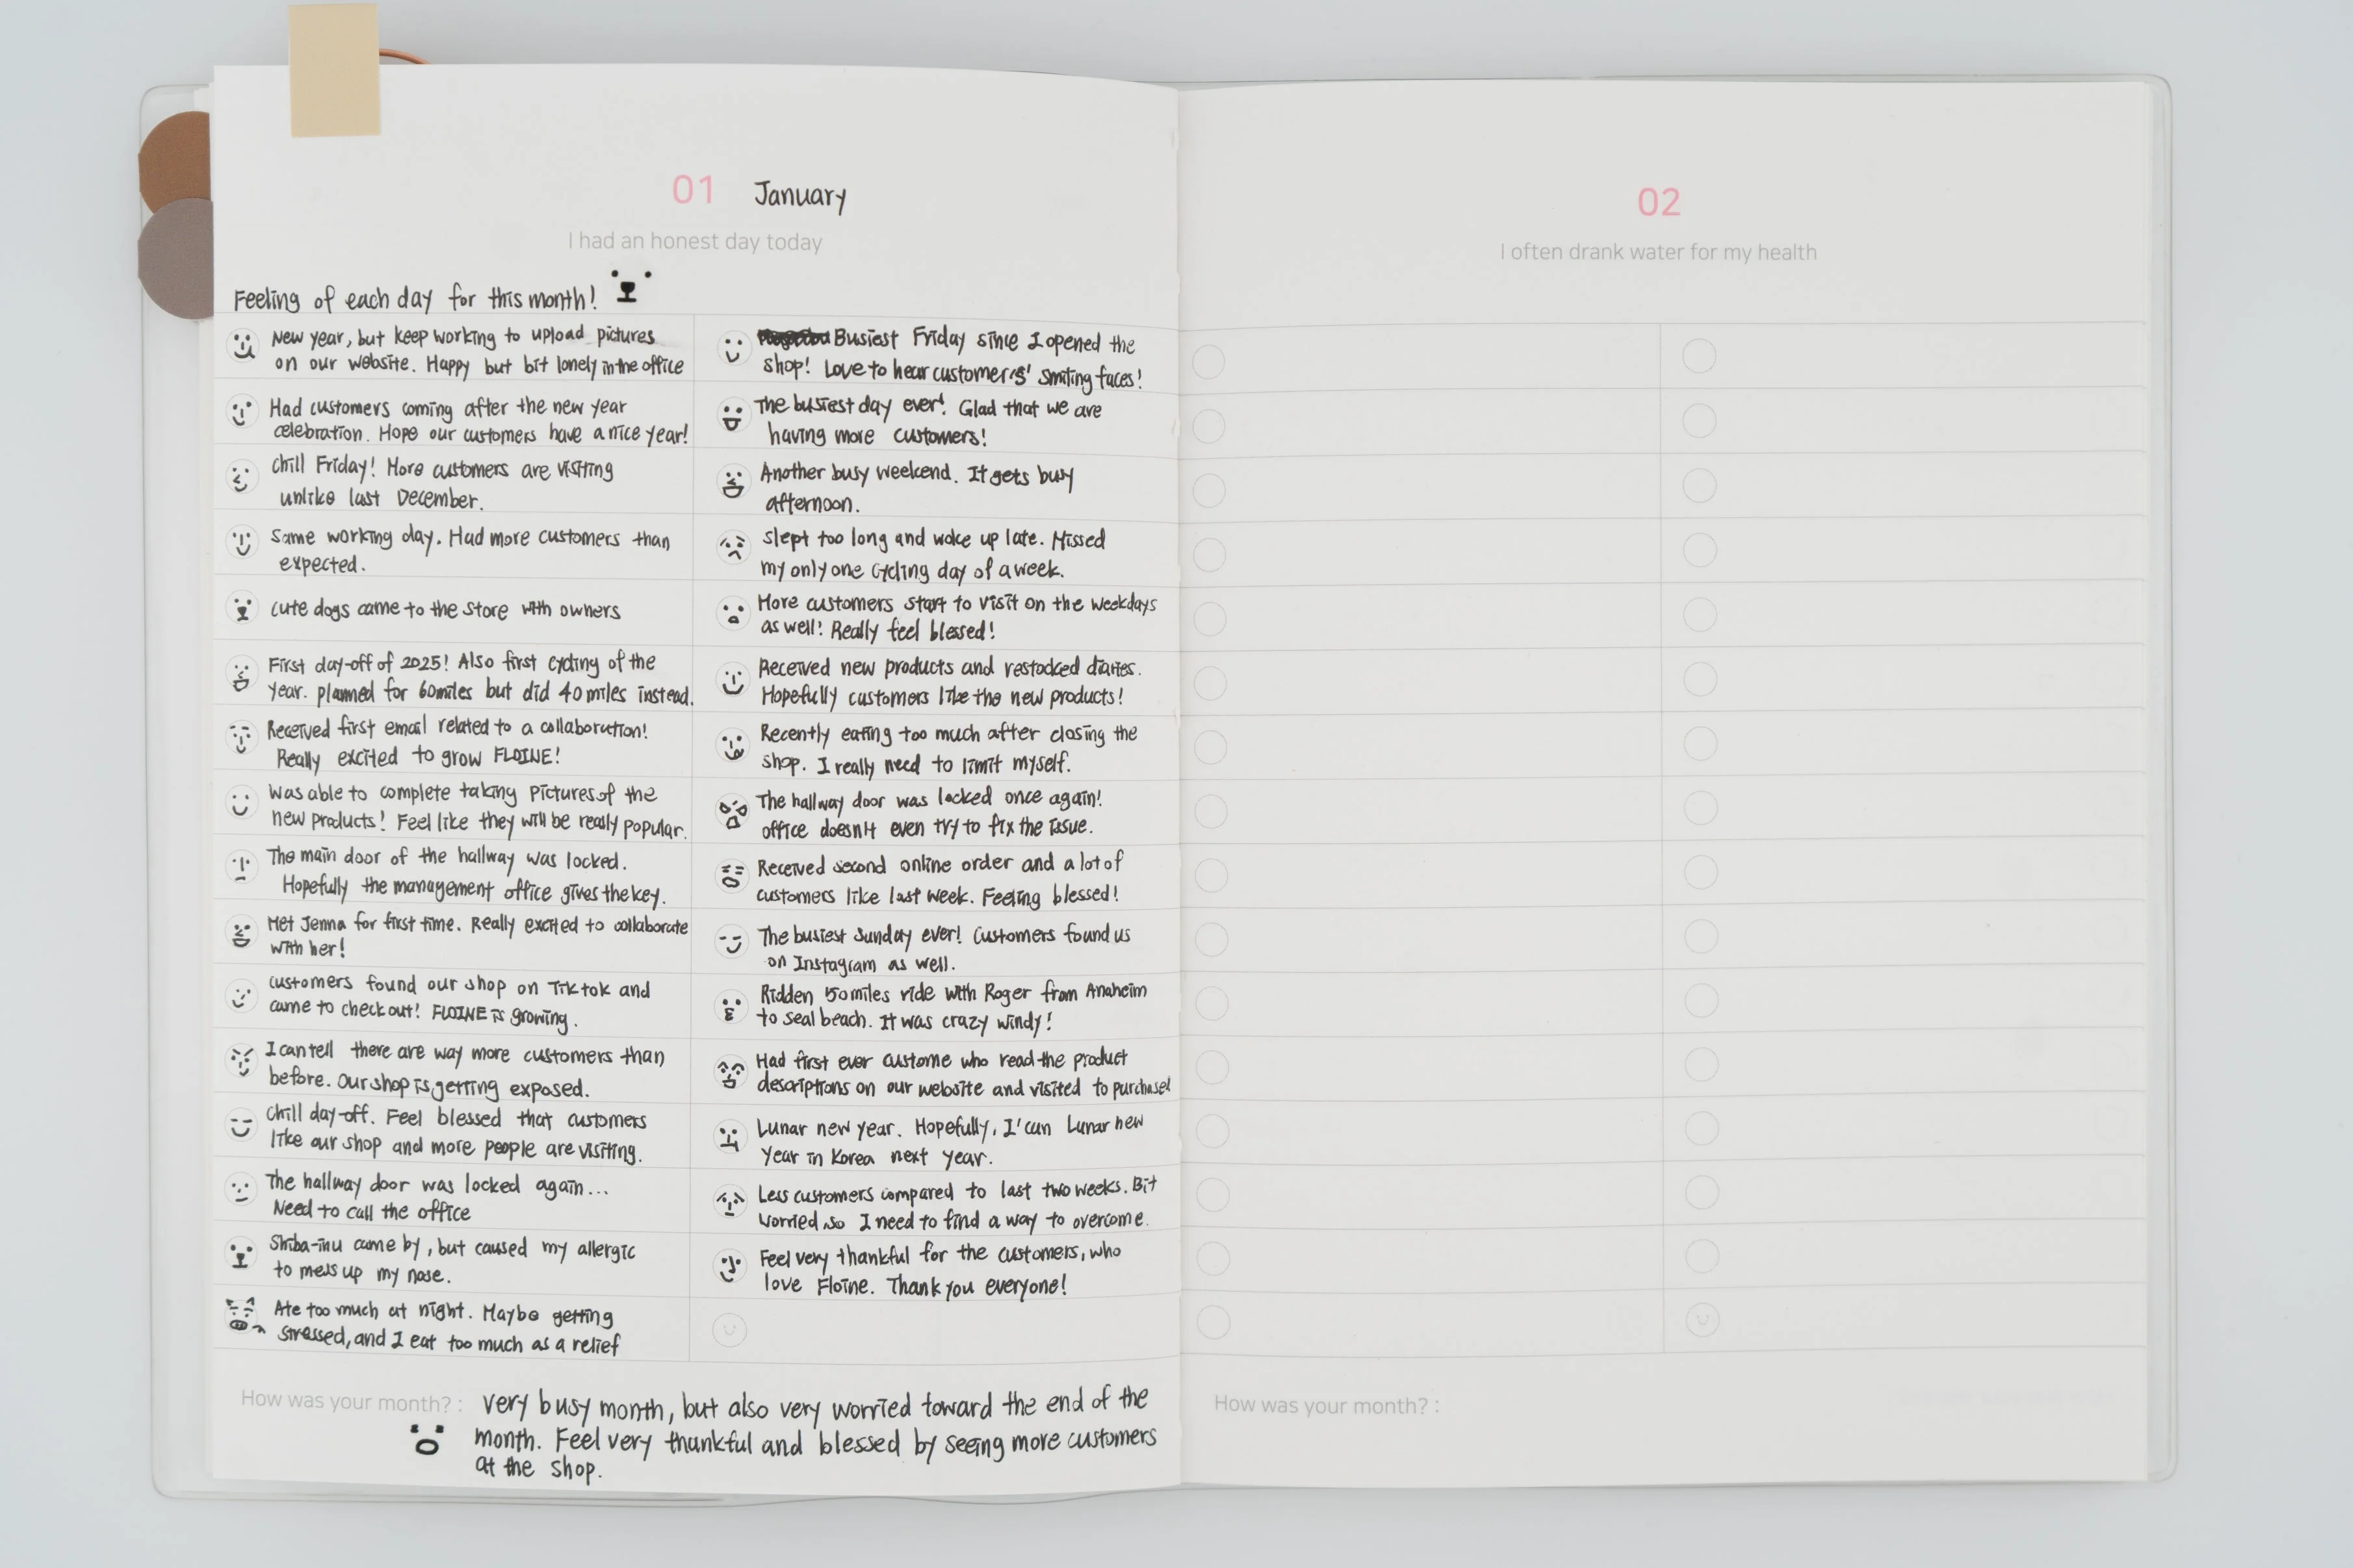 01 January
I had an honest day today
Feeling of each day for this month!
New year, but keep working to upload pictures
on our website. Happy but bit lonely in the office
Had customers coming after the new year
celebration. Hope our customers have a nice year!
Chill Friday! More customers are visiting
unlike last December.
Same working day. Had more customers than
expected.
cute dogs came to the store with owners
First day-off of 2025! Also first cycling of the
year. planned for 60miles but did 40 miles instead.
Received first email related to a collaboration!
Really excited to grow FLOINE!
Was able to complete taking pictures of the
new products! Feel like they will be really popular.
The main door of the hallway was locked.
Hopefully the management office gives the key.
Met Jenna for first time. Really excited to collaborate
with her!
customers found our shop on Tiktok and
came to check out! FLOINE is growing.
I can tell there are way more customers than
before. Our shop is getting exposed.
Chill day-off. Feel blessed that customers
like our shop and more people are visiting.
The hallway door was locked again...
Need to call the office
Shiba-inu came by, but caused my allergic
to mess up my nose.
Ate too much at night. Maybe getting
stressed, and I eat too much as a relief
Busiest Friday since I opened the
shop! Love to hear customers' smiling faces!
The busiest day ever! Glad that we are
having more customers!
Another busy weekend. It gets busy
afternoon.
Slept too long and woke up late. Missed
my only one cycling day of a week.
More customers start to visit on the weekdays
as well! Really feel blessed!
Received new products and restocked diaries.
Hopefully customers like the new products!
Recently eating too much after closing the
shop. I really need to limit myself.
The hallway door was locked once again!
office doesn't even try to fix the issue.
Received second online order and a lot of
customers like last week. Feeling blessed!
The busiest Sunday ever! Customers found us
on Instagram as well.
Ridden 50miles ride with Roger from Anaheim
to seal beach. It was crazy windy!
Had first ever custome who read the product
descriptions on our website and visited to purchase!
Lunar new year. Hopefully, I can Lunar new
year in Korea next year.
Less customers compared to last two weeks. Bit
worried so I need to find a way to overcome.
Feel very thankful for the customers, who
love Floine. Thank you everyone!
How was your month? : very busy month, but also very worried toward the end of the
month. Feel very thankful and blessed by seeing more customers
at the shop.
02
I often drank water for my health
How was your month? :